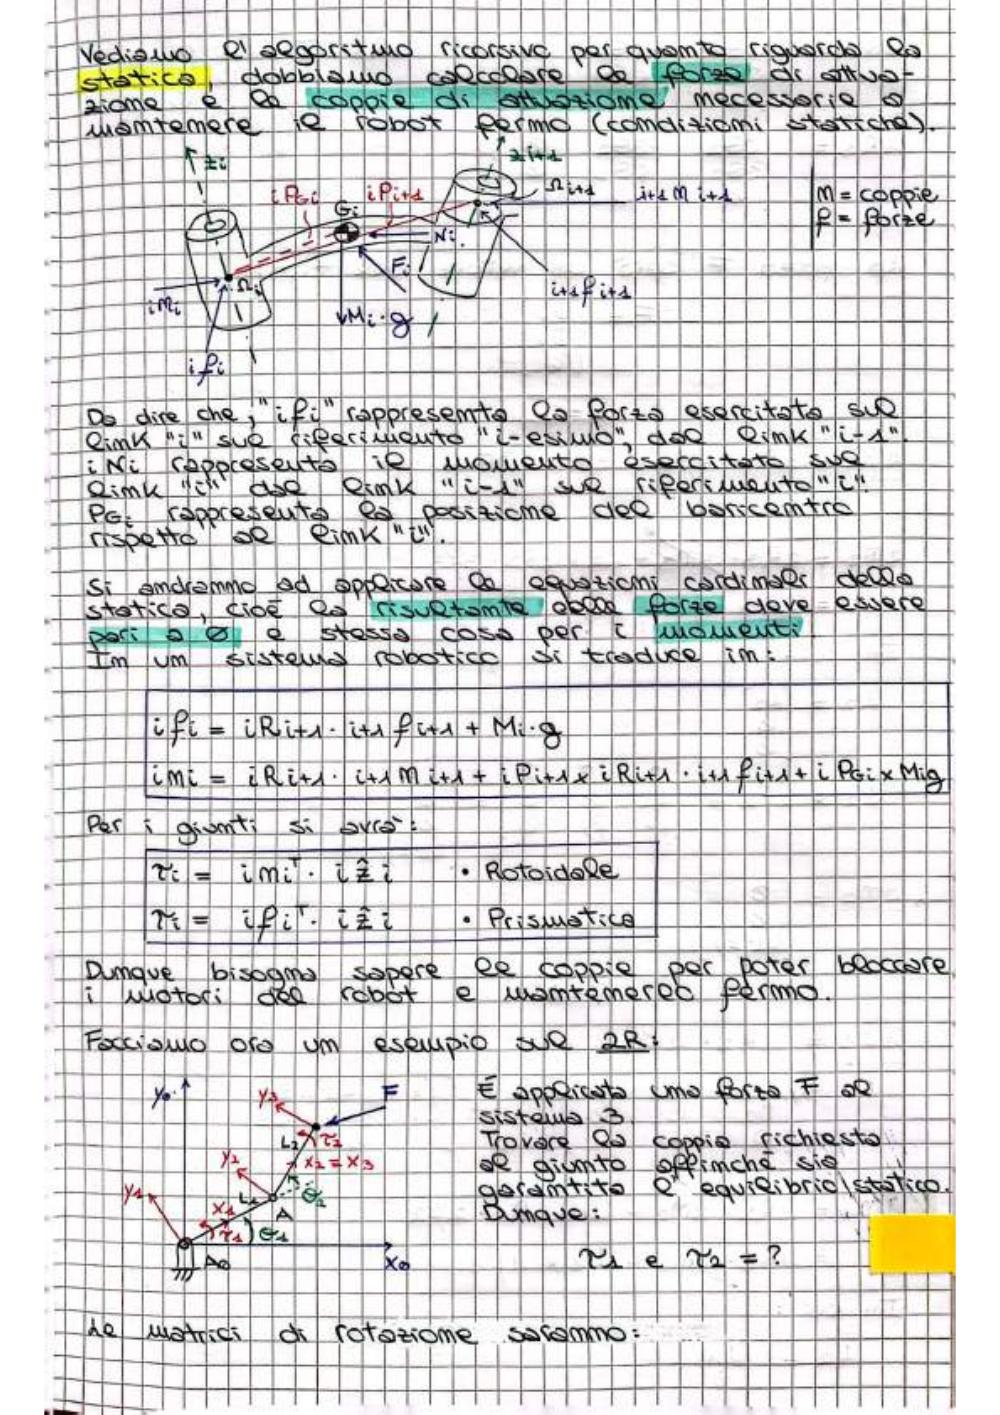 Vediamo l'algoritmo ricorsivo per quanto riguarda la
statica, dobbiamo calcolare le forze di attua-
zione e le coppie di attuazione necessarie a
mantenere il robot fermo (condizioni statiche).
zi
zi+1
iPGi
iPi+1
Gi
Ωi+1
i+1 m i+1
m = coppie
f = forze
Ni
Fi
Ωi
imi
i+1 f i+1
Mi·g
ifi
Da dire che, "ifi" rappresenta la forza esercitata sul
link "i" sul riferimento "i-esimo", dal link "i-1".
iNi rappresenta il momento esercitato sul
link "i" dal link "i-1" sul riferimento "i".
PGi rappresenta la posizione del baricentro
rispetto al link "i".
Si andranno ad applicare le equazioni cardinali della
statica, cioè la risultante delle forze deve essere
pari a 0 e stessa cosa per i momenti
In un sistema robotico si traduce in:
ifi = iRi+1 · i+1 f i+1 + Mi·g
imi = iRi+1 · i+1 m i+1 + iPi+1 x iRi+1 · i+1 f i+1 + iPGi x Mig
Per i giunti si avrà:
τi = imiᵀ · iẑi • Rotoidale
τi = ifiᵀ · iẑi • Prismatico
Dunque bisogna sapere le coppie per poter bloccare
i motori del robot e mantenerlo fermo.
Facciamo ora un esempio sul 2R:
y0
y3
F
È applicata una forza F al
sistema 3.
L2
τ2
Trovare la coppia richiesta
y2
x2 = x3
al giunto affinché sia
y1
L1
θ2
garantito l'equilibrio statico.
x1
A
Dunque:
τ1
θ1
A0
x0
τ1 e τ2 = ?
Le matrici di rotazione saranno: